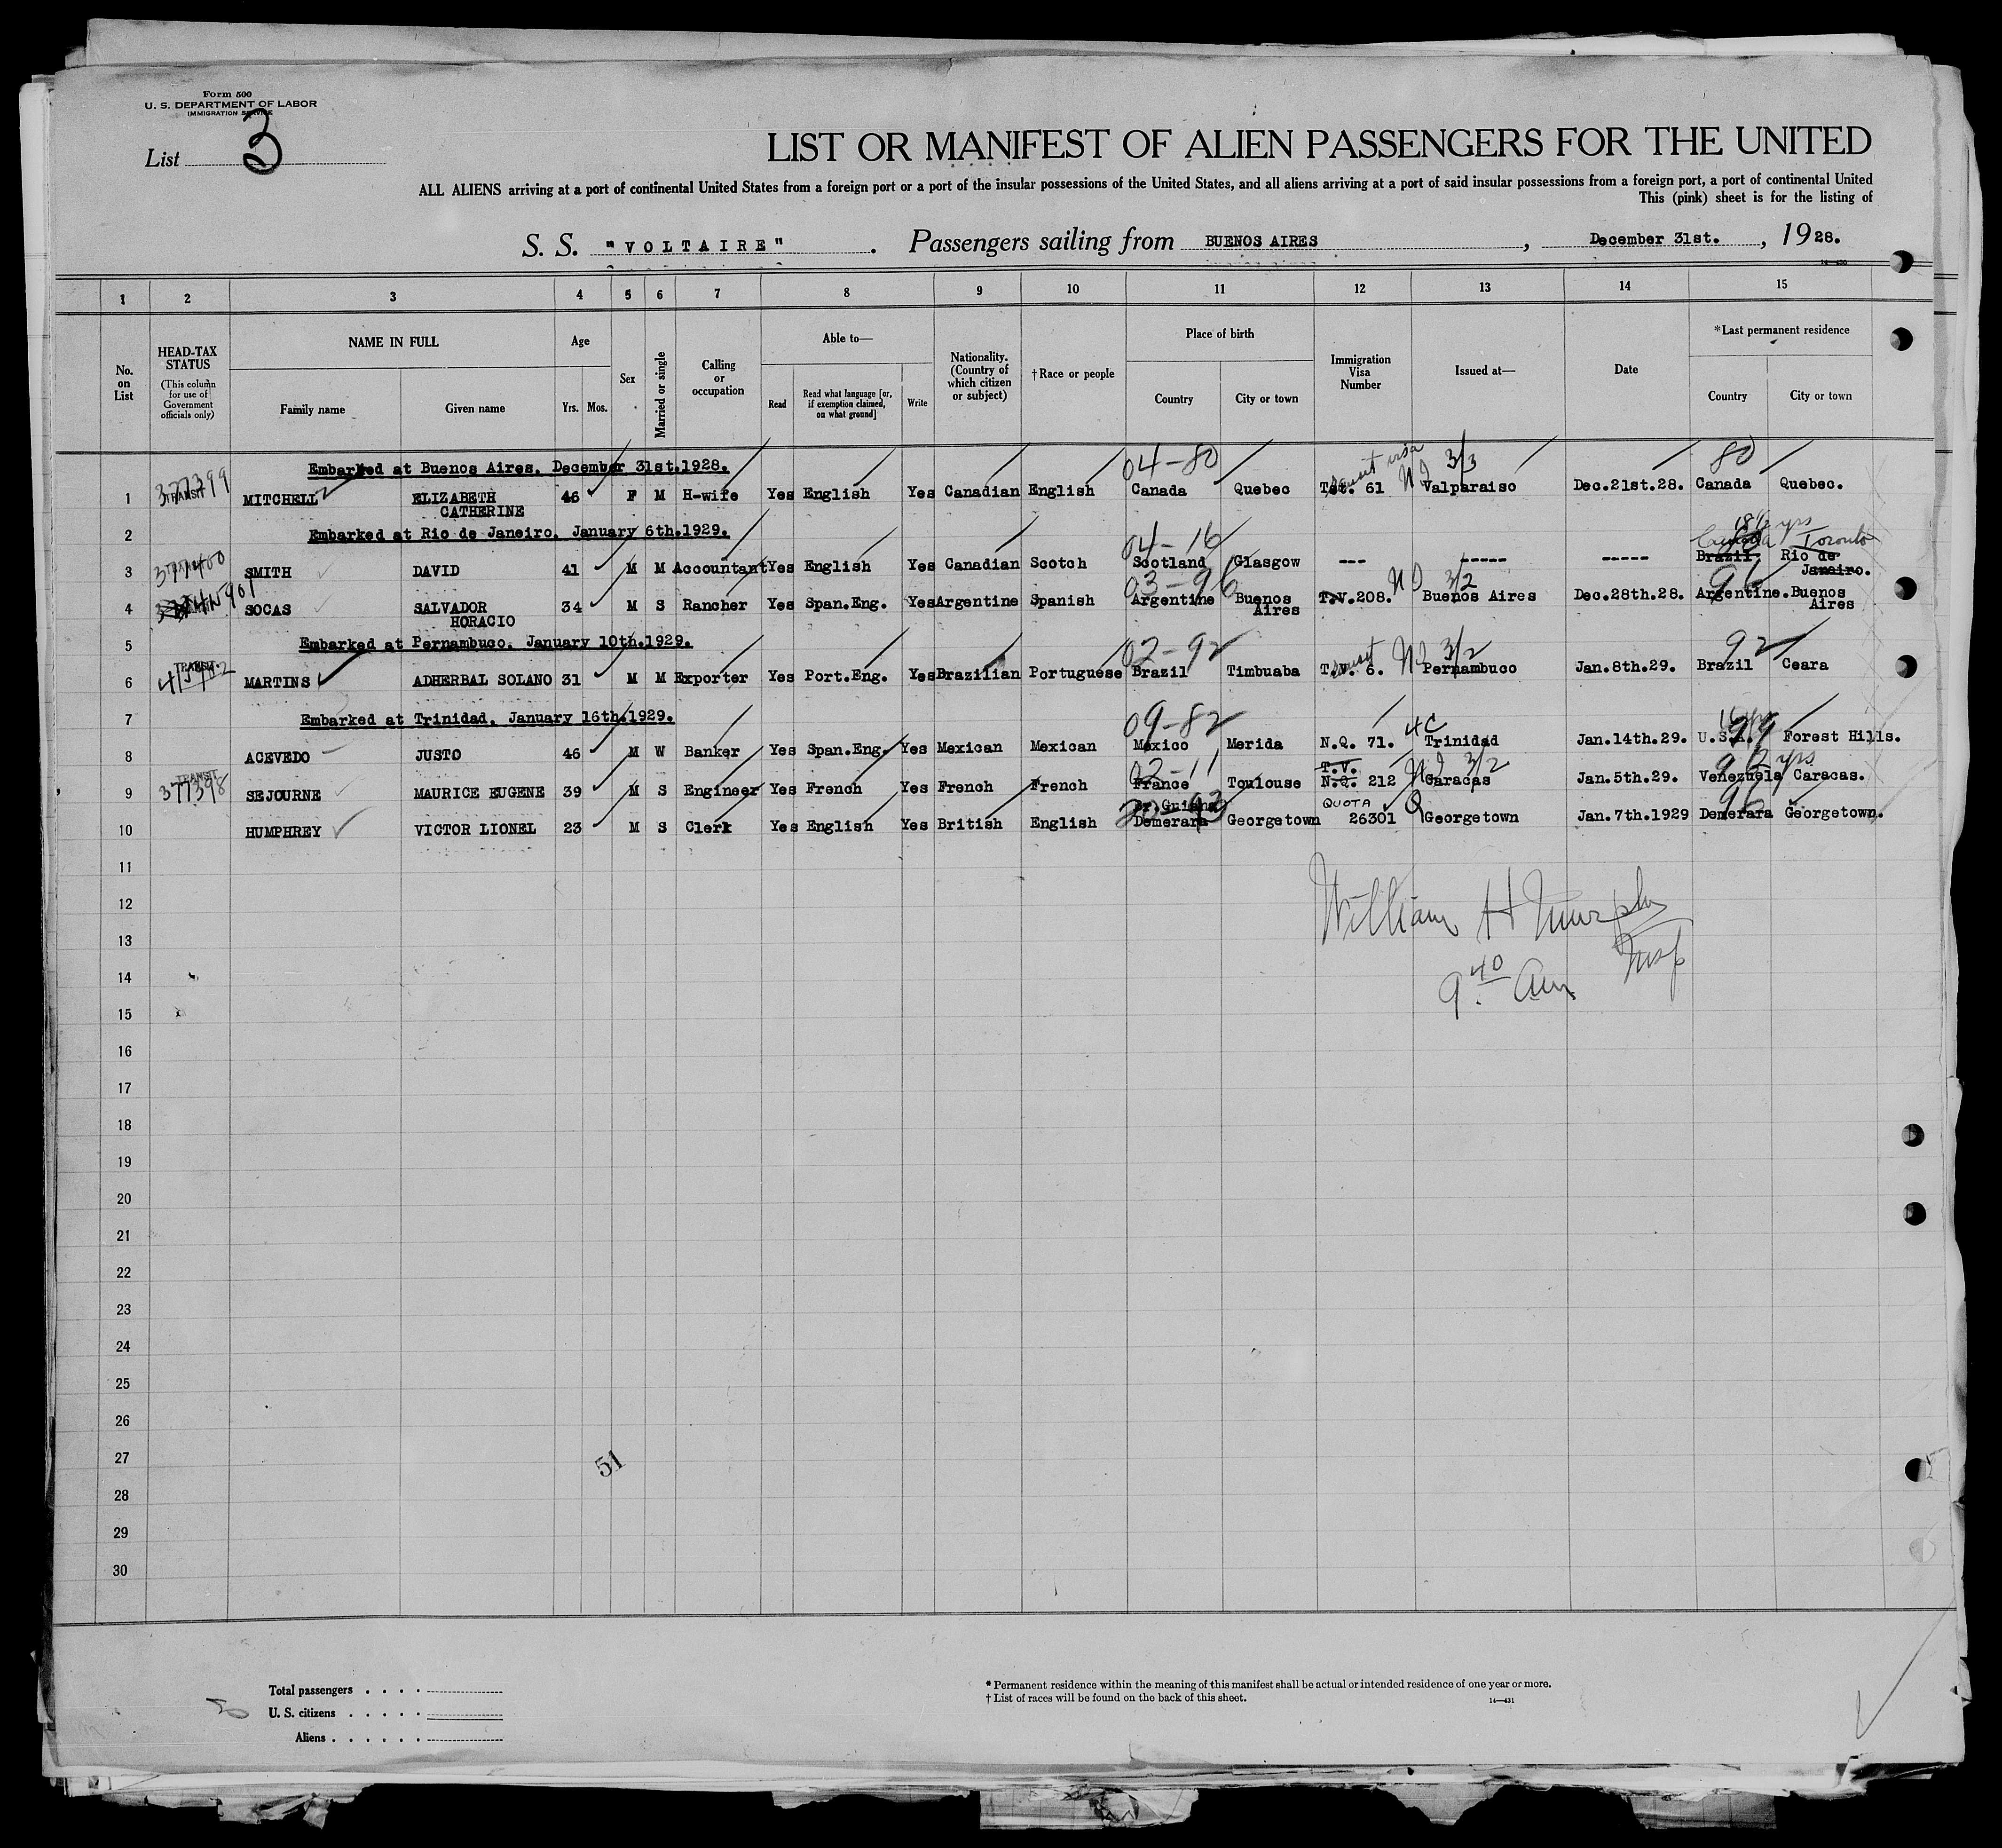 Form 500
U. S. DEPARTMENT OF LABOR
IMMIGRATION SERVICE
List 3
LIST OR MANIFEST OF ALIEN PASSENGERS FOR THE UNITED
ALL ALIENS arriving at a port of continental United States from a foreign port or a port of the insular possessions of the United States, and all aliens arriving at a port of said insular possessions from a foreign port, a port of continental United
This (pink) sheet is for the listing of
S. S. "VOLTAIRE". Passengers sailing from BUENOS AIRES, December 31st., 1928.
1 2 3 4 5 6 7 8 9 10 11 12 13 14 15
No. on List
HEAD-TAX STATUS (This column for use of Government officials only)
NAME IN FULL Family name Given name
Age Yrs. Mos.
Sex
Married or single
Calling or occupation
Able to— Read Read what language [or, if exemption claimed, on what ground] Write
Nationality. (Country of which citizen or subject)
†Race or people
Place of birth Country City or town
Immigration Visa Number
Issued at—
Date
*Last permanent residence Country City or town
Embarked at Buenos Aires. December 31st.1928. 04-80 80
1 377399 TRANSIT MITCHELL ELIZABETH CATHERINE 46 F M H-wife Yes English Yes Canadian English Canada Quebec 61 NI 3/3 Valparaiso Dec.21st.28. Canada Quebec.
2 Embarked at Rio de Janeiro. January 6th.1929. 04-16 yrs
Canada Toronto
3 377400 SMITH DAVID 41 M M Accountant Yes English Yes Canadian Scotch Scotland Glasgow --- ----- ----- Brazil, Rio de Janeiro.
03-96 NI 3/2 96
4 SOCAS SALVADOR HORACIO 34 M S Rancher Yes Span.Eng. Yes Argentine Spanish Argentine Buenos Aires T.V.208. Buenos Aires Dec.28th.28. Argentine. Buenos Aires
5 Embarked at Pernambuco. January 10th.1929. 02-92 NI 3/2 92
6 TRANSIT MARTINS ADHERBAL SOLANO 31 M M Exporter Yes Port.Eng. Yes Brazilian Portuguese Brazil Timbuaba T.V. 6. Pernambuco Jan.8th.29. Brazil Ceara
7 Embarked at Trinidad. January 16th.1929. 09-82 4C
8 ACEVEDO JUSTO 46 M W Banker Yes Span.Eng. Yes Mexican Mexican Mexico Merida N.Q. 71. Trinidad Jan.14th.29. U.S.A. 99 Forest Hills.
02-11 T.V. NI 3/2 yrs
9 TRANSIT 377398 SEJOURNE MAURICE EUGENE 39 M S Engineer Yes French Yes French French France Toulouse N.Q. 212 Caracas Jan.5th.29. Venezuela Caracas.
Br.Guiana QUOTA Q 96
10 HUMPHREY VICTOR LIONEL 23 M S Clerk Yes English Yes British English Demerara Georgetown 26301 Georgetown Jan.7th.1929 Demerara Georgetown.
11
12 William H Murphy
13 Insp
14 9.40 Am
15
16
17
18
19
20
21
22
23
24
25
26
27
51
28
29
30
Total passengers
U. S. citizens
Aliens
* Permanent residence within the meaning of this manifest shall be actual or intended residence of one year or more.
† List of races will be found on the back of this sheet.
14—431